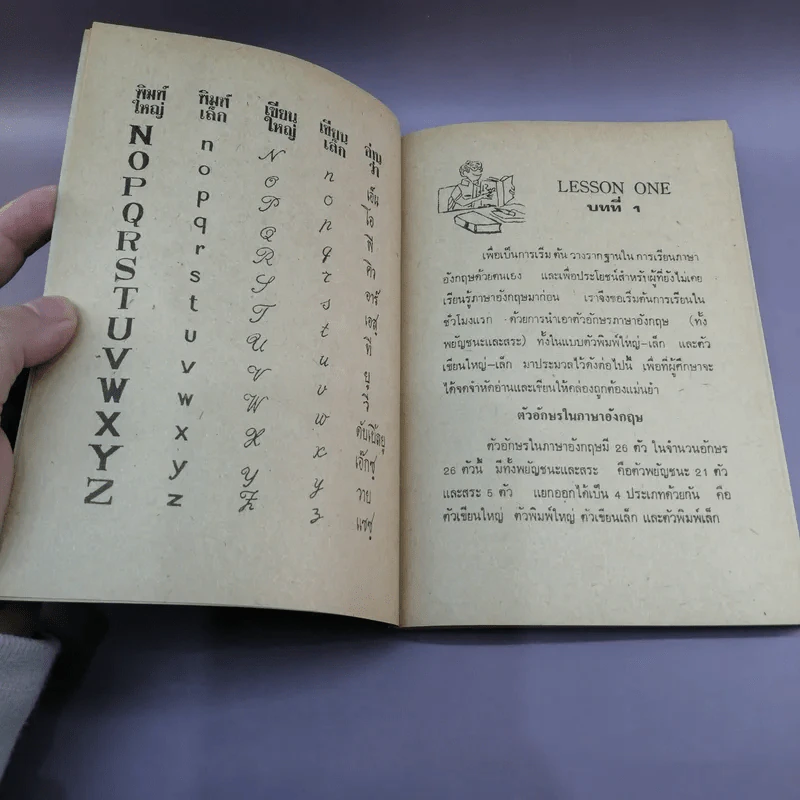 พิมพ์ใหญ่ พิมพ์เล็ก เขียนใหญ่ เขียนเล็ก อ่านว่า
N n N n เอ็น
O o O o โอ
P p P p พี
Q q Q q คิว
R r R r อาร์
S s S s เอส
T t T t ที
U u U u ยู
V v V v วี
W w W w ดับเบิ้ลยู
X x X x เอ๊กซ์
Y y Y y วาย
Z z Z z แซซ
LESSON ONE
บทที่ 1
เพื่อเป็นการเริ่มต้น วางรากฐานใน การเรียนภาษา
อังกฤษด้วยตนเอง และเพื่อประโยชน์สำหรับผู้ที่ยังไม่เคย
เรียนรู้ภาษาอังกฤษมาก่อน เราจึงขอเริ่มต้นการเรียนใน
ชั่วโมงแรก ด้วยการนำเอาตัวอักษรภาษาอังกฤษ (ทั้ง
พยัญชนะและสระ) ทั้งในแบบตัวพิมพ์ใหญ่-เล็ก และตัว
เขียนใหญ่-เล็ก มาประมวลไว้ดังต่อไปนี้ เพื่อที่ผู้ศึกษาจะ
ได้จดจำหัดอ่านและเขียนให้คล่องถูกต้องแม่นยำ
ตัวอักษรในภาษาอังกฤษ
ตัวอักษรในภาษาอังกฤษมี 26 ตัว ในจำนวนอักษร
26 ตัวนี้ มีทั้งพยัญชนะและสระ คือตัวพยัญชนะ 21 ตัว
และสระ 5 ตัว แยกออกได้เป็น 4 ประเภทด้วยกัน คือ
ตัวเขียนใหญ่ ตัวพิมพ์ใหญ่ ตัวเขียนเล็ก และตัวพิมพ์เล็ก